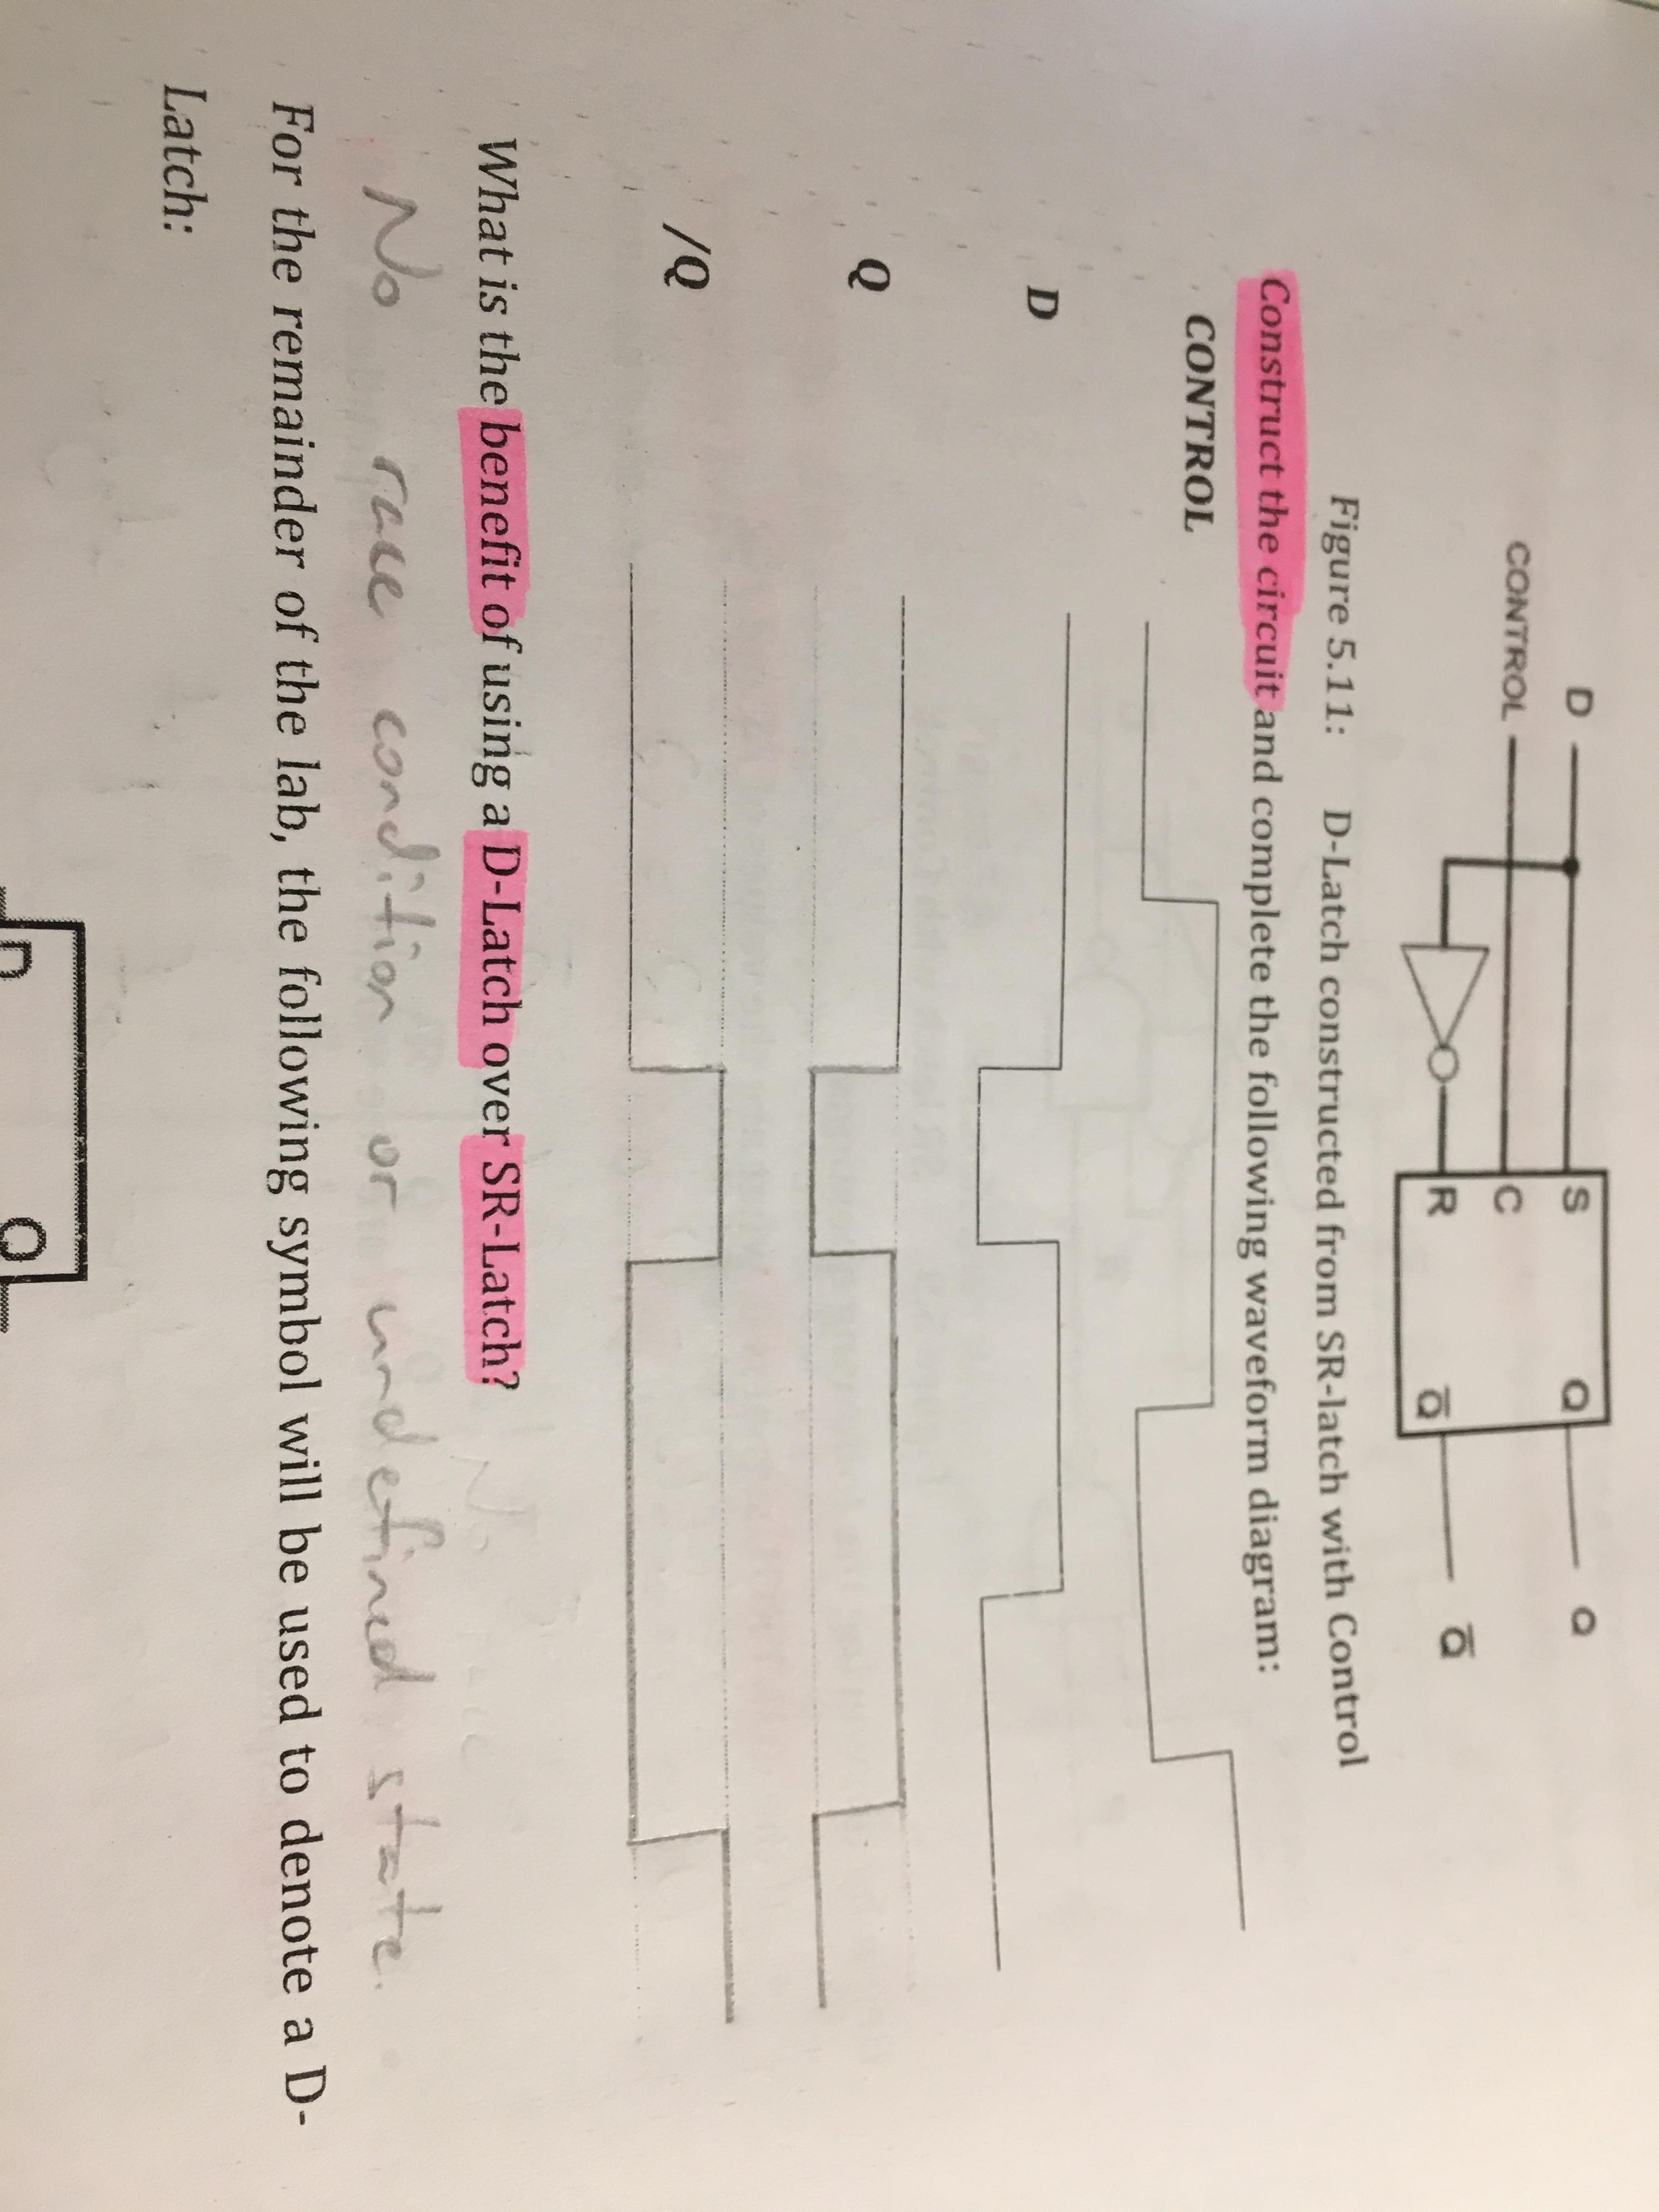 D S Q Q
CONTROL C
R Q̅ Q̅
Figure 5.11: D-Latch constructed from SR-latch with Control
Construct the circuit and complete the following waveform diagram:
CONTROL
D
Q
/Q
What is the benefit of using a D-Latch over SR-Latch?
No race condition or undefined state.
For the remainder of the lab, the following symbol will be used to denote a D-
Latch:
D Q